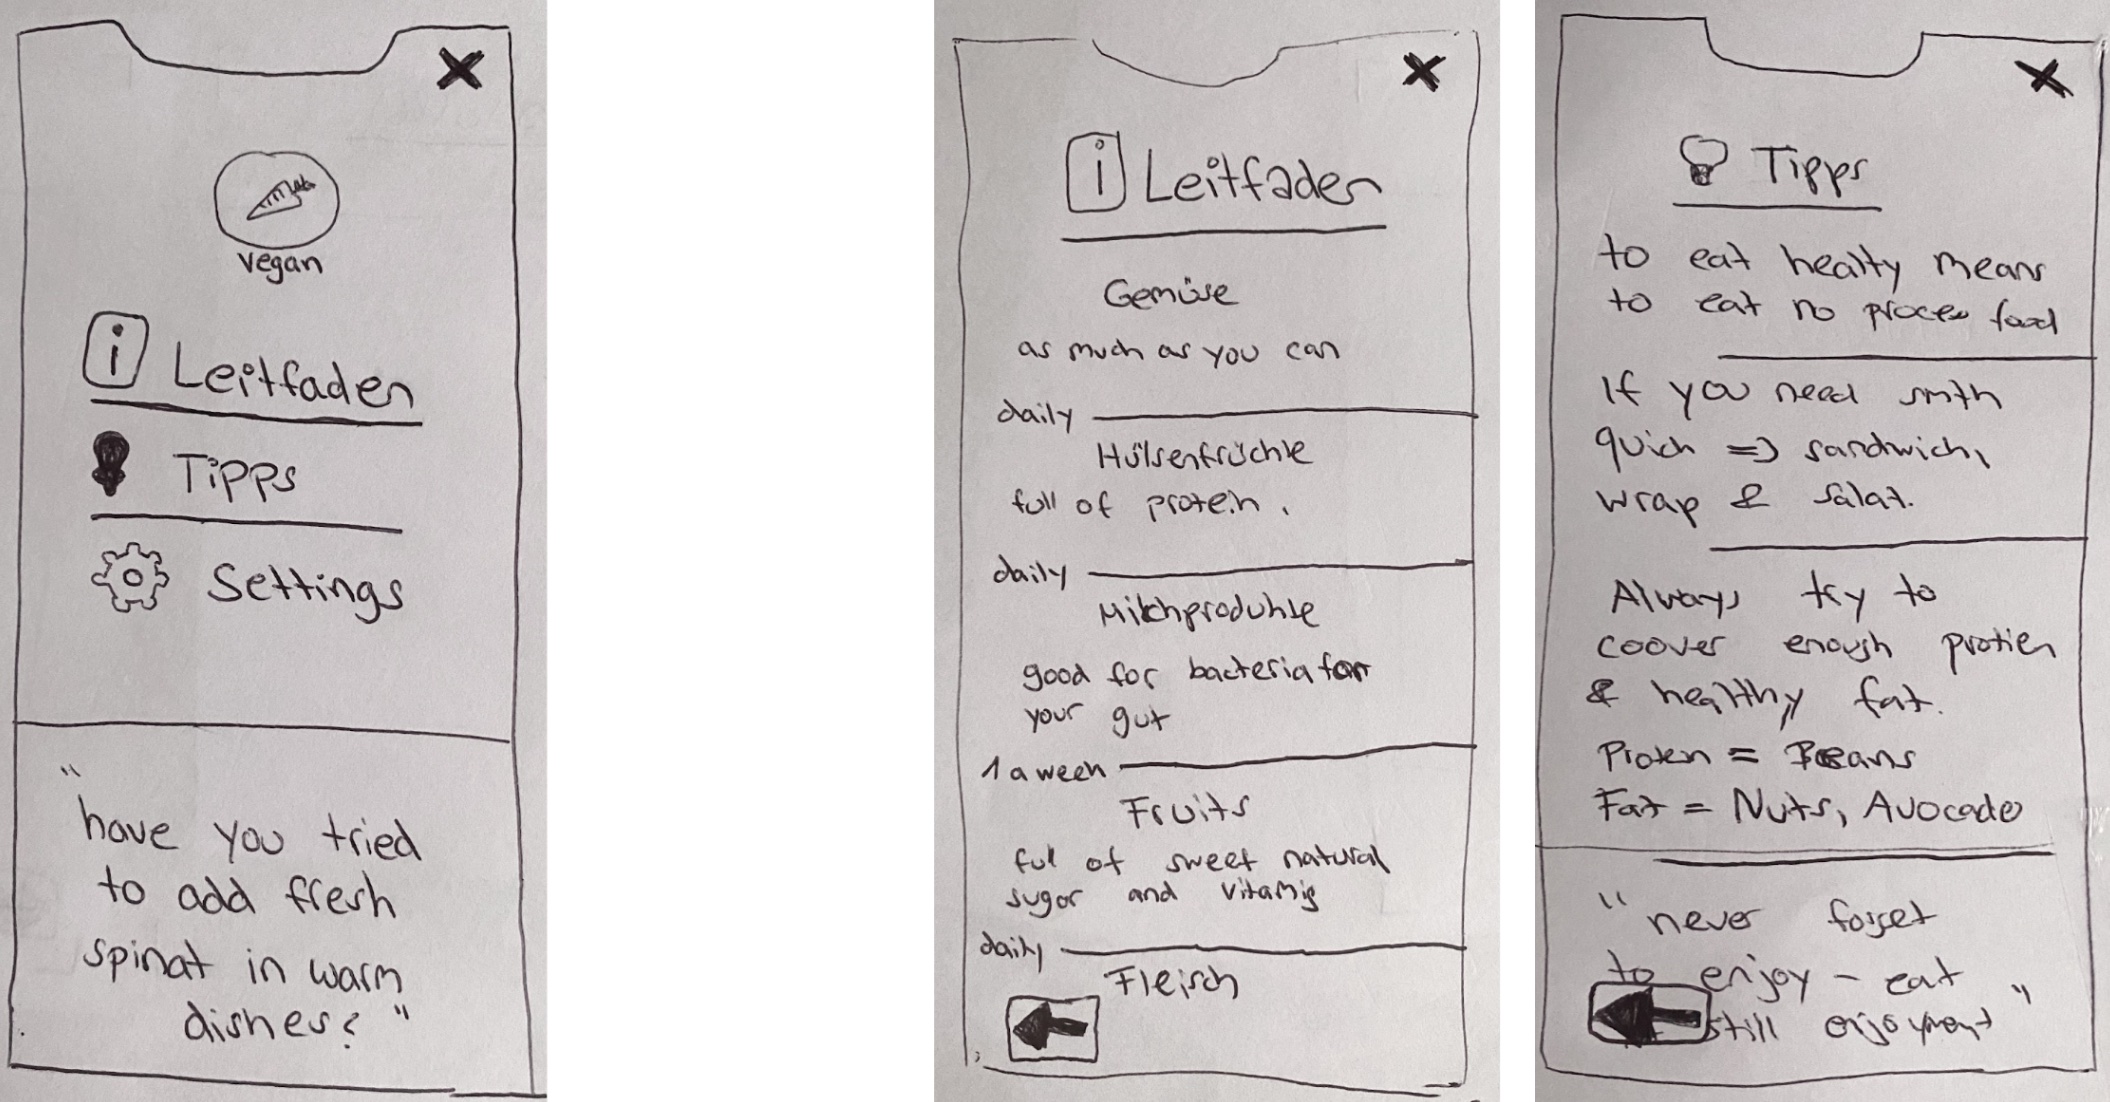 vegan
i Leitfaden
Tipps
Settings
"have you tried
to add fresh
spinat in warm
dishes?"
i Leitfaden
Gemüse
as much as you can
daily
Hülsenfrüchte
full of protein.
daily
Milchprodukte
good for bacteria for
your gut
1 a week
Fruits
full of sweet natural
sugar and
daily
Fleisch
Tipps
to eat healty means
to eat no process food
If you need smth
quick => sandwich,
wrap & salat.
Always try to
coover enough protien
& healthy fat.
Protein = Beans
Fat = Nuts, Avocado
"never forget
to enjoy - eat
still enjoyment"